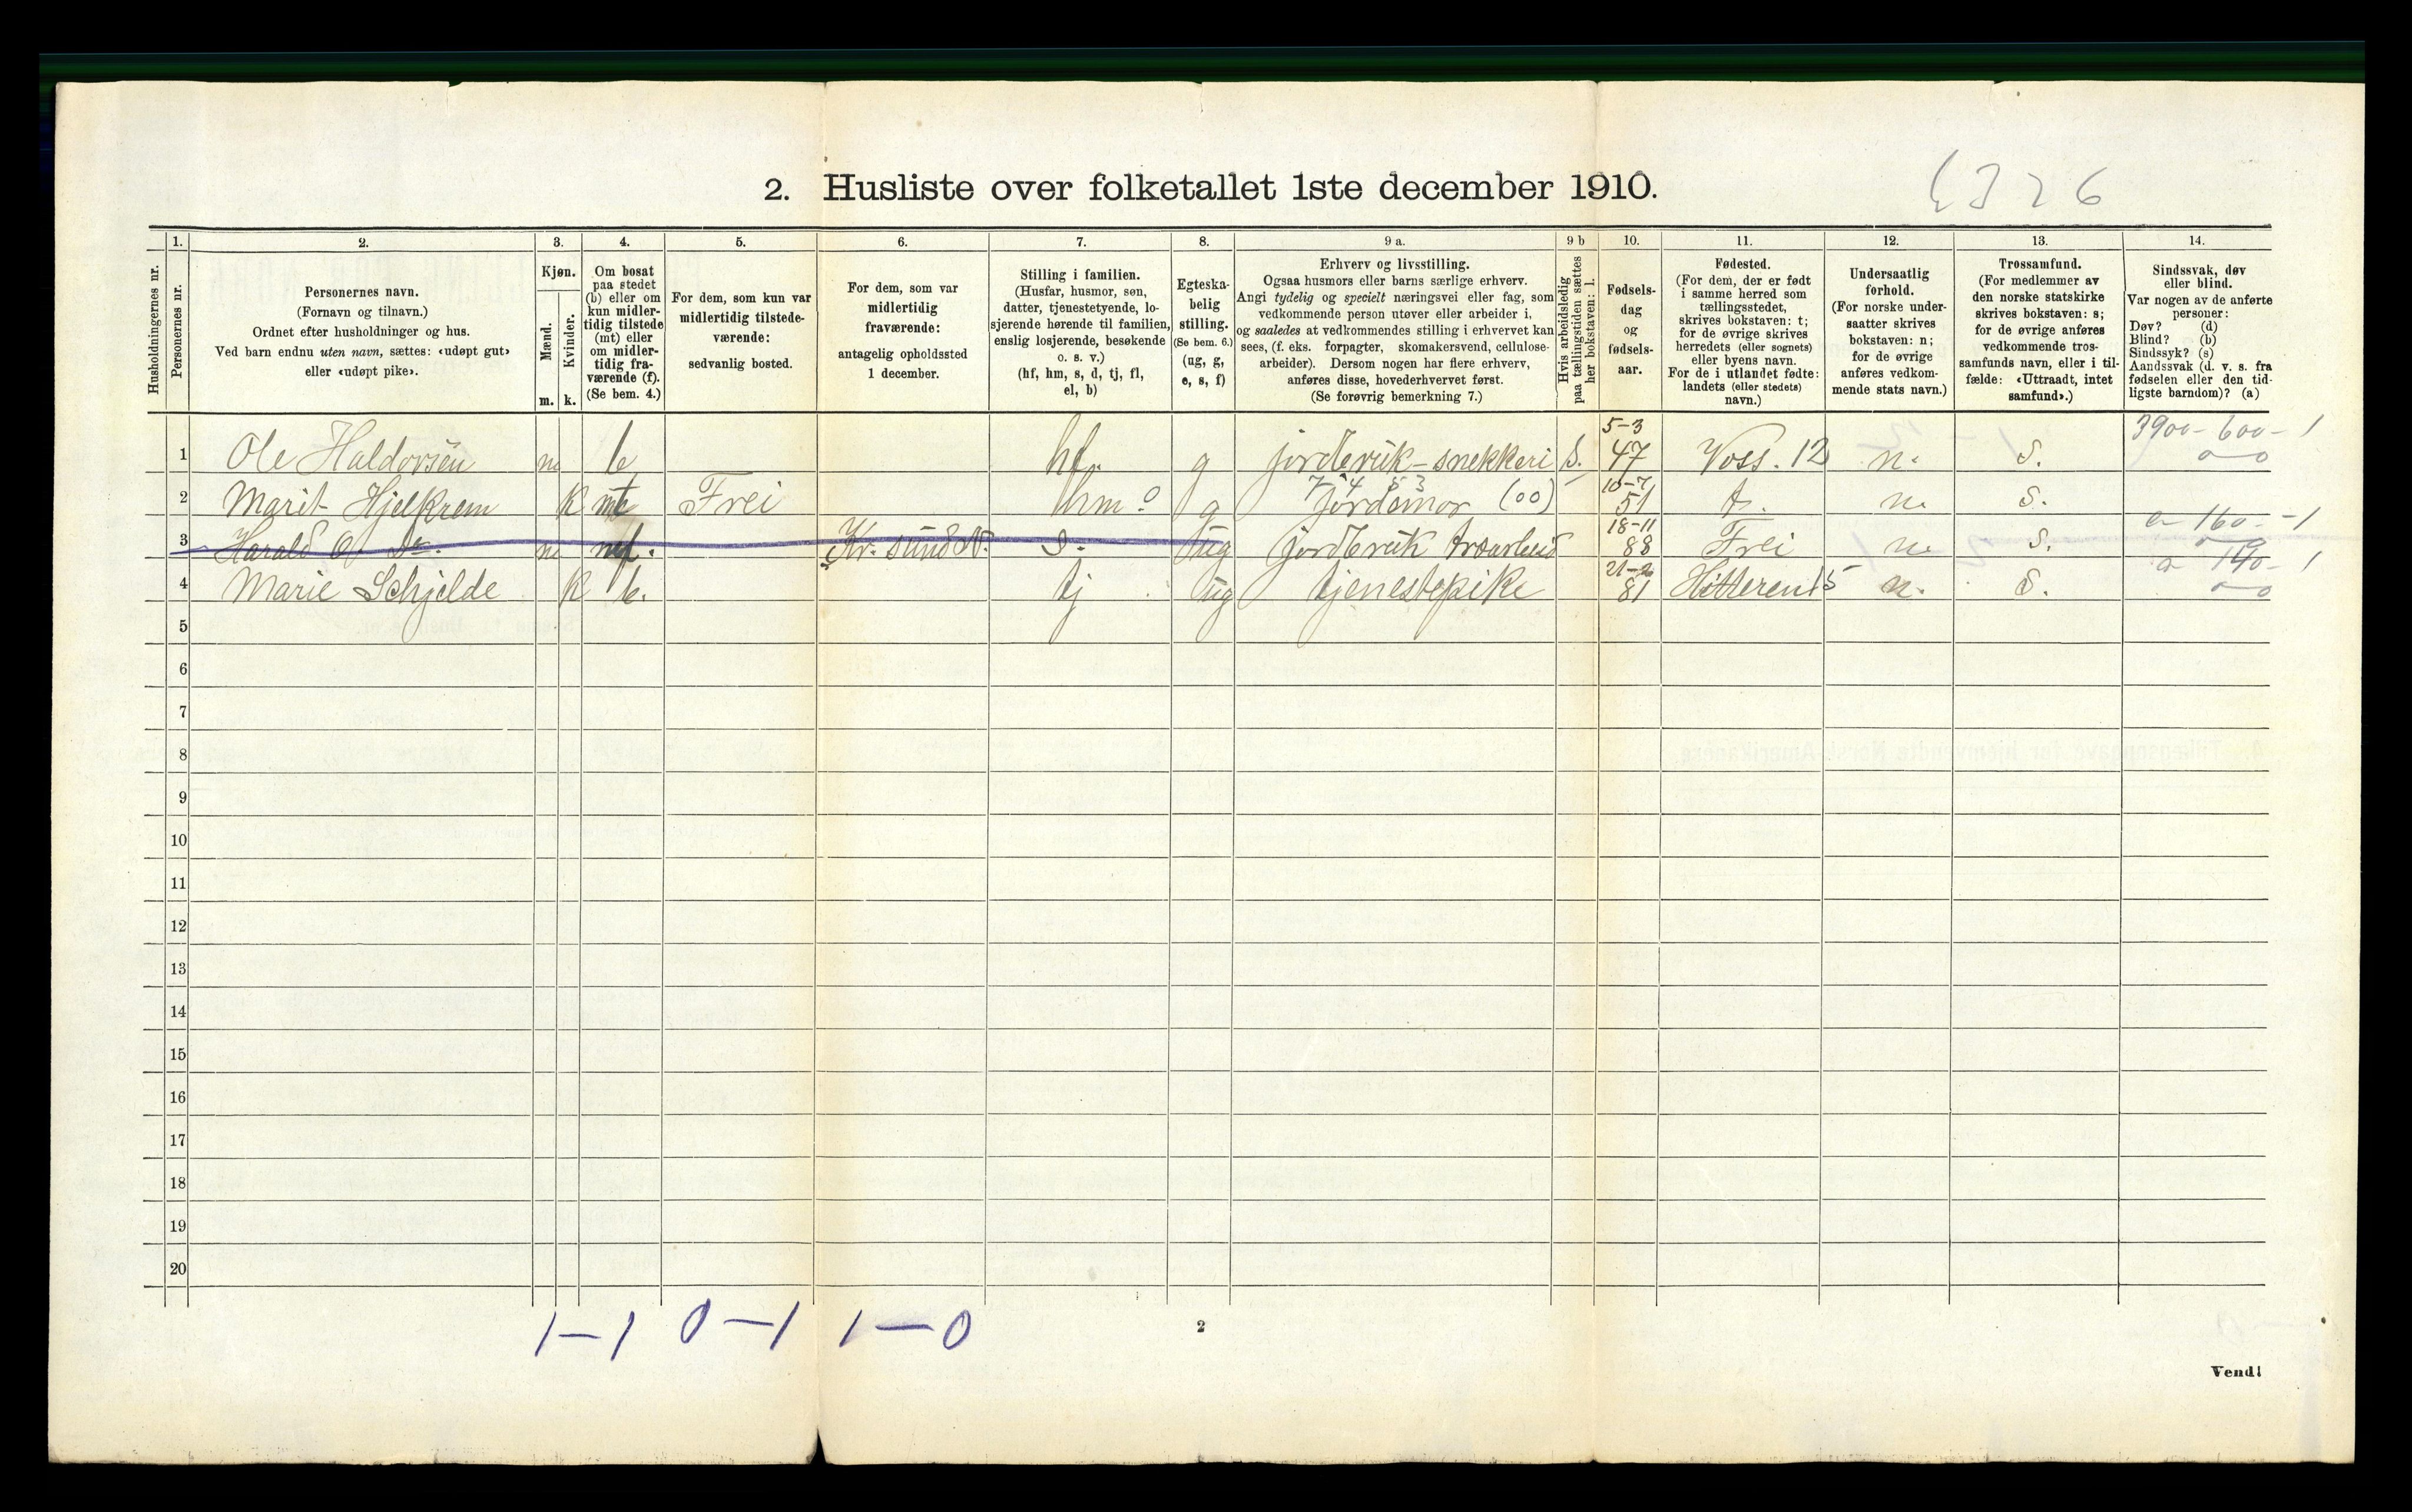 2. Husliste over folketallet 1ste december 1910.
Husholdningernes nr.
1.
Personernes nr.
2.
Personernes navn.
(Fornavn og tilnavn.)
Ordnet efter husholdninger og hus.
Ved barn endnu uten navn, sættes: «udøpt gut»
eller «udøpt pike».
3.
Kjøn.
Mænd.
Kvinder.
m. k.
4.
Om bosat
paa stedet
(b) eller om
kun midler-
tidig tilstede
(mt) eller
om midler-
tidig fra-
værende (f).
(Se bem. 4.)
5.
For dem, som kun var
midlertidig tilstede-
værende:
sedvanlig bosted.
6.
For dem, som var
midlertidig
fraværende:
antagelig opholdssted
1 december.
7.
Stilling i familien.
(Husfar, husmor, søn,
datter, tjenestetyende, lo-
sjerende hørende til familien,
enslig losjerende, besøkende
o. s. v.)
(hf, hm, s, d, tj, fl,
el, b)
8.
Egteska-
belig
stilling.
(Se bem. 6.)
(ug, g,
e, s, f)
9 a.
Erhverv og livsstilling.
Ogsaa husmors eller barns særlige erhverv.
Angi tydelig og specielt næringsvei eller fag, som
vedkommende person utøver eller arbeider i,
og saaledes at vedkommendes stilling i erhvervet kan
sees, (f. eks. forpagter, skomakersvend, cellulose-
arbeider). Dersom nogen har flere erhverv,
anføres disse, hovederhvervet først.
(Se forøvrig bemerkning 7.)
9 b
Hvis arbeidsledig
paa tællingstiden sættes
her bokstaven: l.
10.
Fødsels-
dag
og
fødsels-
aar.
11.
Fødested.
(For dem, der er født
i samme herred som
tællingsstedet,
skrives bokstaven: t;
for de øvrige skrives
herredets (eller sognets)
eller byens navn.
For de i utlandet fødte:
landets (eller stedets)
navn.)
12.
Undersaatlig
forhold.
(For norske under-
saatter skrives
bokstaven: n;
for de øvrige
anføres vedkom-
mende stats navn.)
13.
Trossamfund.
(For medlemmer av
den norske statskirke
skrives bokstaven: s;
for de øvrige anføres
vedkommende tros-
samfunds navn, eller i til-
fælde: «Uttraadt, intet
samfund».)
14.
Sindssvak, døv
eller blind.
Var nogen av de anførte
personer:
Døv? (d)
Blind? (b)
Sindssyk? (s)
Aandssvak (d. v. s. fra
fødselen eller den tid-
ligste barndom)? (a)
1 Ole Haldorsen m b hf. g jordbruk-snekkeri S. 5-3 47 Voss. 12 n. S. 3900-600-1
2 Marit Hjelkrem k mt Frei hm g Jordemor (00) 10-7 51 t. n. S.
3 Harald O. Do. m Kr. sund N. s. ug jordbruk 18-11 88 Frei n. S. 160-1
4 Marie Schjelde k b. tj ug tjenestepike 81 Hitteren 15 n. S. 140-1
5
6
7
8
9
10
11
12
13
14
15
16
17
18
19
20
1-1 0-1 1-0
2
Vend!